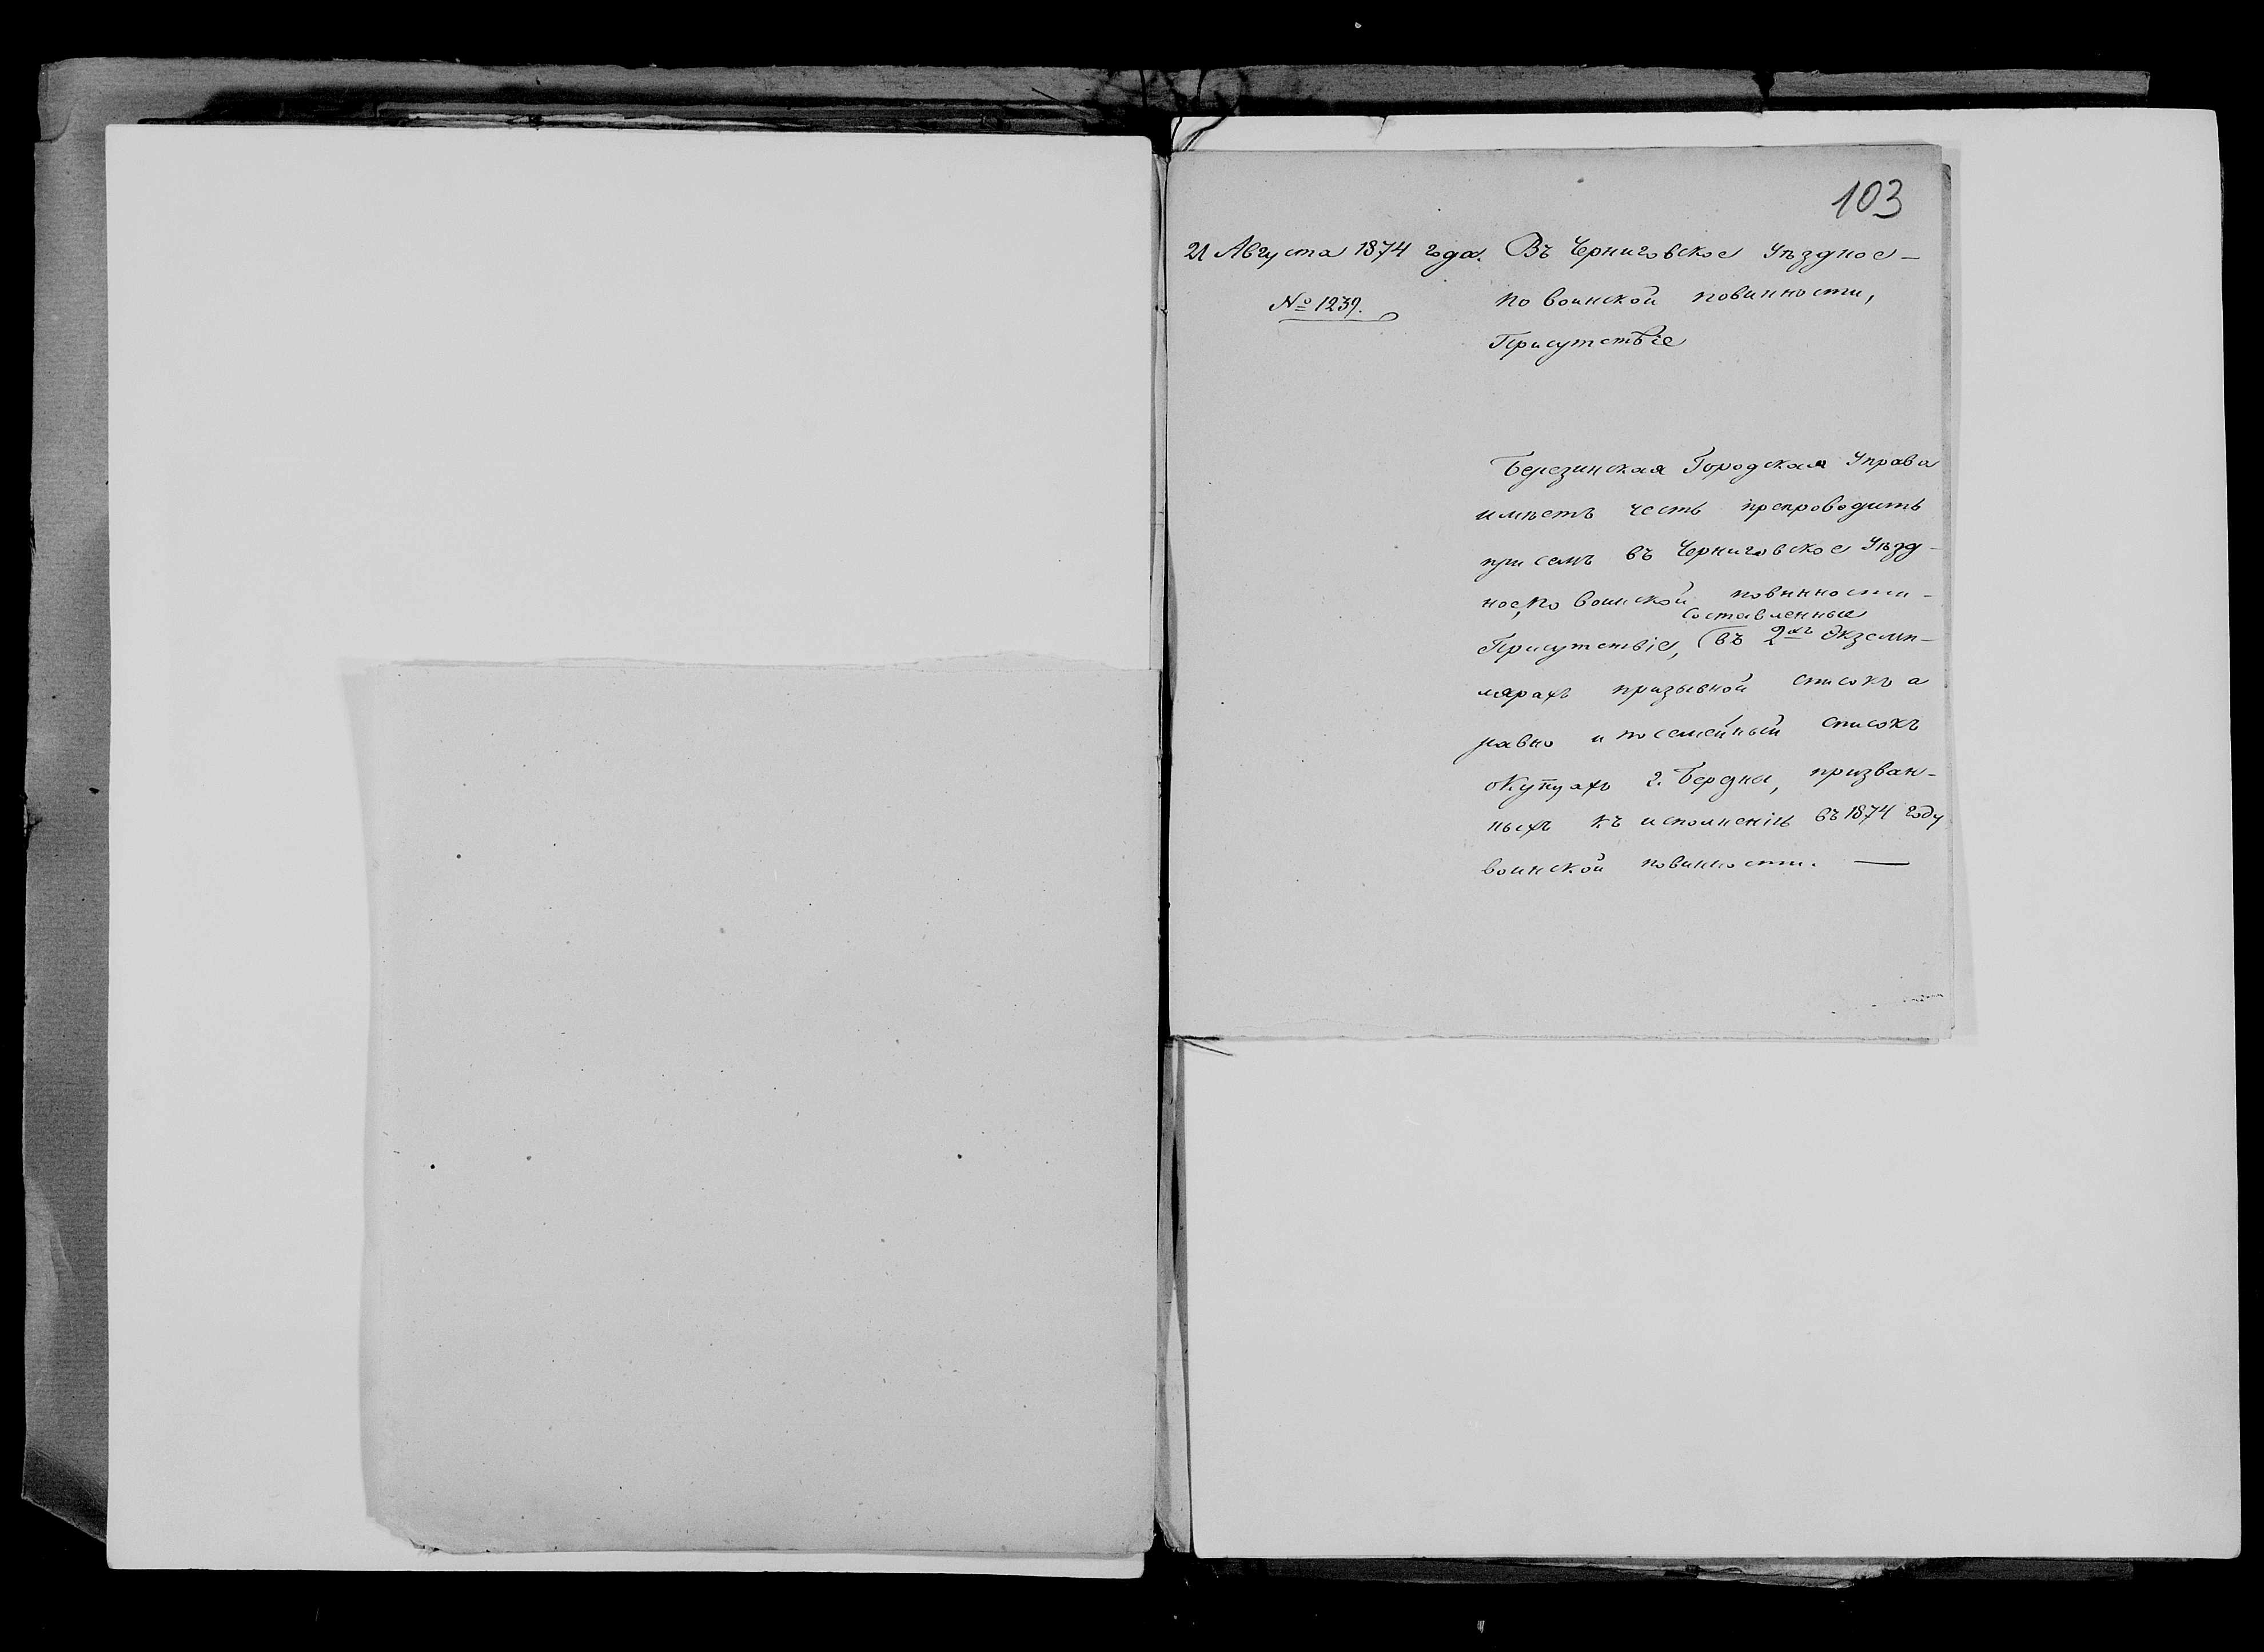 103
21 Августа 1874 года. Въ Черниговское Уѣздное –
№ 1239.
по воинской повинности,
Присутствіе
Березинская Городская Управа
имѣетъ честь препроводить
при семъ въ Черниговское Уѣзд-
ное, по воинской повинности –
составленные
Присутствіе, въ 2хъ Экземп-
лярахъ призывной списокъ а
равно и посемейный списокъ
о Купцахъ г. Березна, призван-
ныхъ къ исполненію въ 1874 году
воинской повинности. —